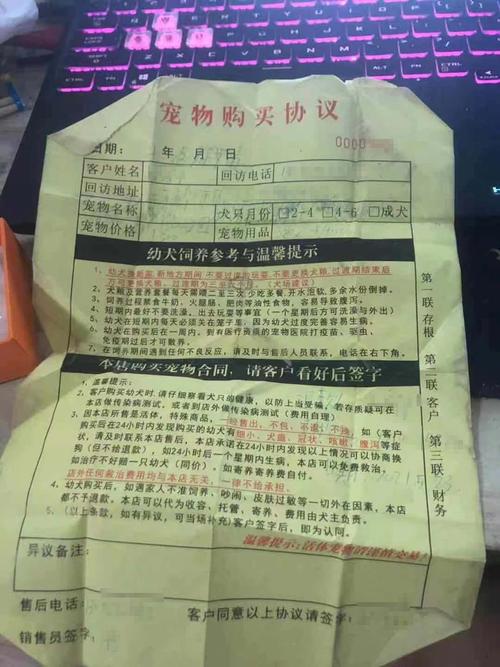 宠物购买协议
0000
日期： 年 月 日
客户姓名 回访电话
回访地址
宠物名称 犬只月份 □2-4 □4-6 □成犬
宠物价格 宠物用品
幼犬饲养参考与温馨提示
1、幼犬换新家,新地方期间,不要过度的玩耍,不要更换犬粮,过渡期结束后
方可更换犬粮、过渡期为三至 (犬场建议)
2、犬粮及营养套餐每天需喂二至三次,少吃多餐,开水泡软,多余水份倒掉。
3、饲养过程禁食牛奶、火腿肠、肥肉等油性食物,容易导致腹泻。
4、短期内最好不要洗澡、出去玩耍等事宜(一个星期后方可洗澡与外出)
5、幼犬在短期内每天必须关在笼子里,因为幼犬过度玩耍容易生病。
6、幼犬在购买后一周内,到有医疗资质的宠物医院打疫苗、驱虫、
免疫期过后才可散养。
7、在饲养期间遇到任何不良反应,请及时与售后人员联系,电话在右下角。
本店购买宠物合同,请客户看好后签字
1、温馨提示:
2、客户购买幼犬时,请仔细察看犬只的健康,以防上当受骗,若存质疑可在
本店做传染病测试,或者到店外做传染病测试(费用自理)
3、因本店所售是活体,特殊商品,一经售出,不包、不退、不换,如(客户
购买后在24小时内发现购买的幼犬有细小、犬瘟、冠状、咳嗽、腹泻等症
状,请及时联系本店售后,本店承诺在24小时内发现以上情况可以协商换
狗(但不给退款),如24小时后一个星期内生病,本店可以免费救治,
如治疗不好赔一只幼犬(同价)。如需寄养寄养费自付。
店外任何救治费用均与本店无关,一律不给承担。
4、幼犬购买后,如遇家人不准饲养、吵闹、皮肤过敏等一切外在因素,本店
都不予退款。本店可以代为收容、托管、寄养、费用由犬主负责。
5、(以上条款,如有异议,可当场补充)客户签字后,即为认同。
温馨提示:活体宠物谨慎交易!
异议备注:
售后电话:
客户同意以上协议请签字:
销售员签字:
第一联存根 第二联客户 第三联财务